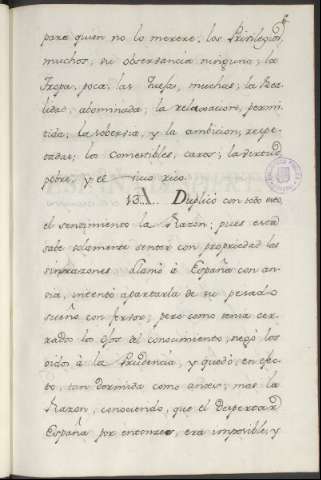 para quien no lo merece; los Privilegios,
muchos, su observancia ninguna; la
Tropa, poca; las Quejas, muchas; la Rea-
lidad, abominada; la relaxacion, permi-
tida; la sobervia, y la ambicion, respe-
tadas; los Comestibles, caros; la virtud
pobre, y el vicio rico.
13.. Duplicó con todo esto,
el sentimiento la Razon; pues esta
sabe solamente sentir con propriedad las
sinrazones. Llamó à España con an-
sia, intentó apartarla de su pesado
sueño con fervor; pero como tenia cer-
rados los ojos del conocimiento, negó los
oidos à la Prudencia, y quedó en efec-
to, tan dormida como antes; mas la
Razon, conociendo, que el despertar
España por entonces, era imposible, y